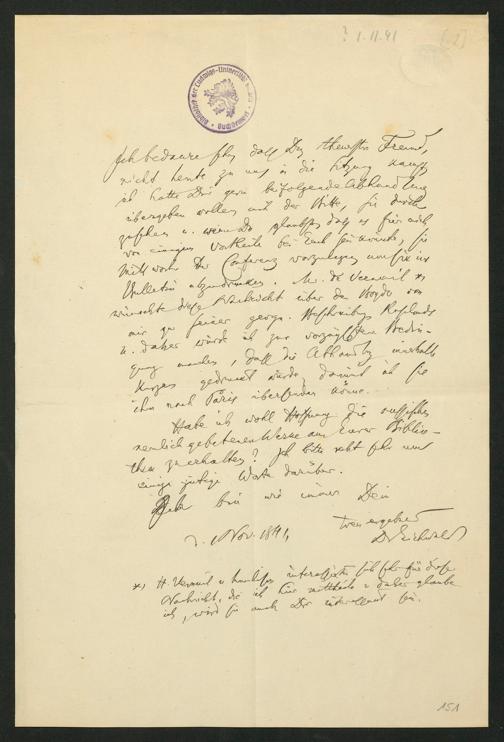 ? 1.11.41
[2]
Bibliothek der Ludwigs-Universität
Ich bedaure sehr, daß Du, theuerster Freund,
nicht heute zu uns in die Sitzung kamst,
ich hatte Dir gern beifolgende Abhandlung
übergeben wollen mit der Bitte, sie durch-
zusehen u. wenn Du glaubst, daß es für mich
von einigem Vortheile bei Euch sein würde, sie
der Conferenz vorzulegen um sie im
Bulletin abzudrucken. M. de Verneuil *)
wünschte diese Nachricht über die
mir zu seiner geogn. Beschreibung Russlands
u. daher würde ich zur vorzüglichsten Bedin-
gung machen, daß die Abhandlung innerhalb
Kurzem gedruckt würde, damit ich sie
ihm nach Paris übersenden könne.
Habe ich wohl Hoffnung die russischen
neulich gebetenen Werke aus Eurer Biblio-
thek zu erhalten? Ich bitte recht sehr um
einige gütige Worte darüber.
bin wie immer Dein
treu ergebner
D. Eichwald
d. 1 Nov. 1841,
*) H. Verneuil u. interessirten sich sehr für diese
Nachricht, die ich hier mittheile u. daher glaube
ich, wird sie auch Dir interessant sein.
151